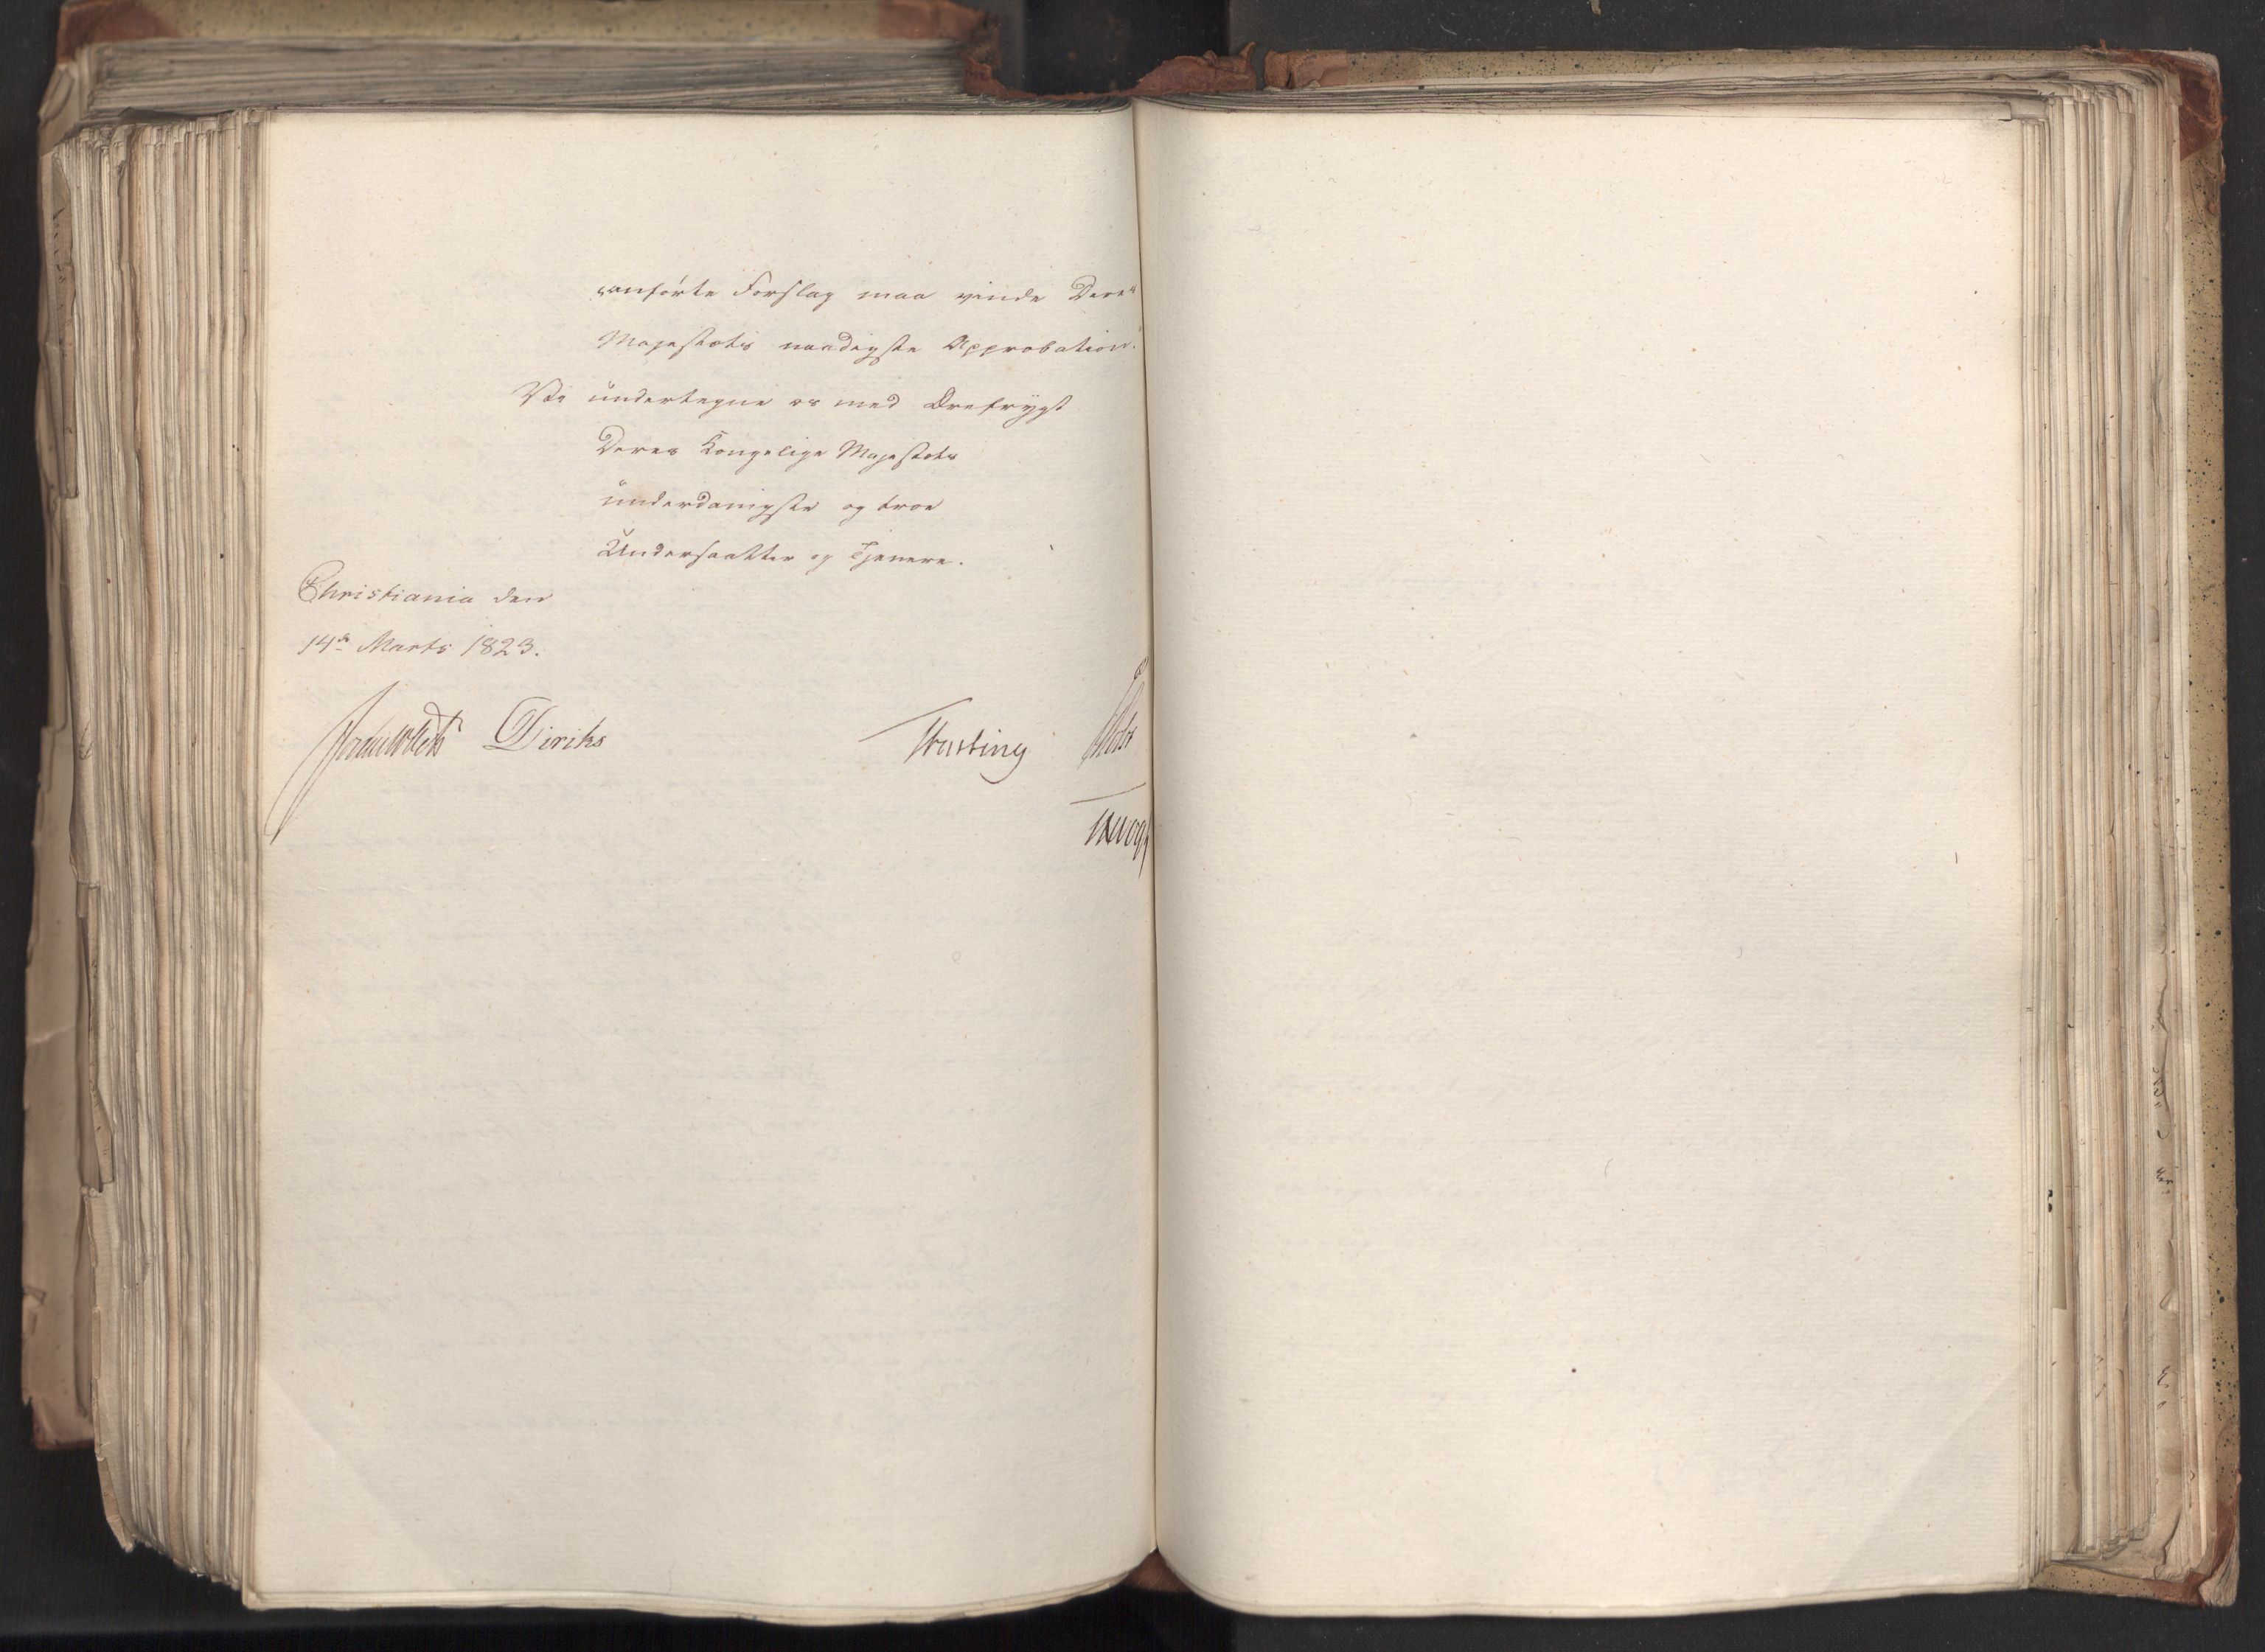 anførte Forslag maa vinde Deres
Majestæts naadigste Approbation.
Vi undertegne os med Ærefrygt
Deres Kongelige Majestæts
underdanigste og troe
Undersaatter og Tjenere.
Christiania den
14de Marts 1823.
Diriks